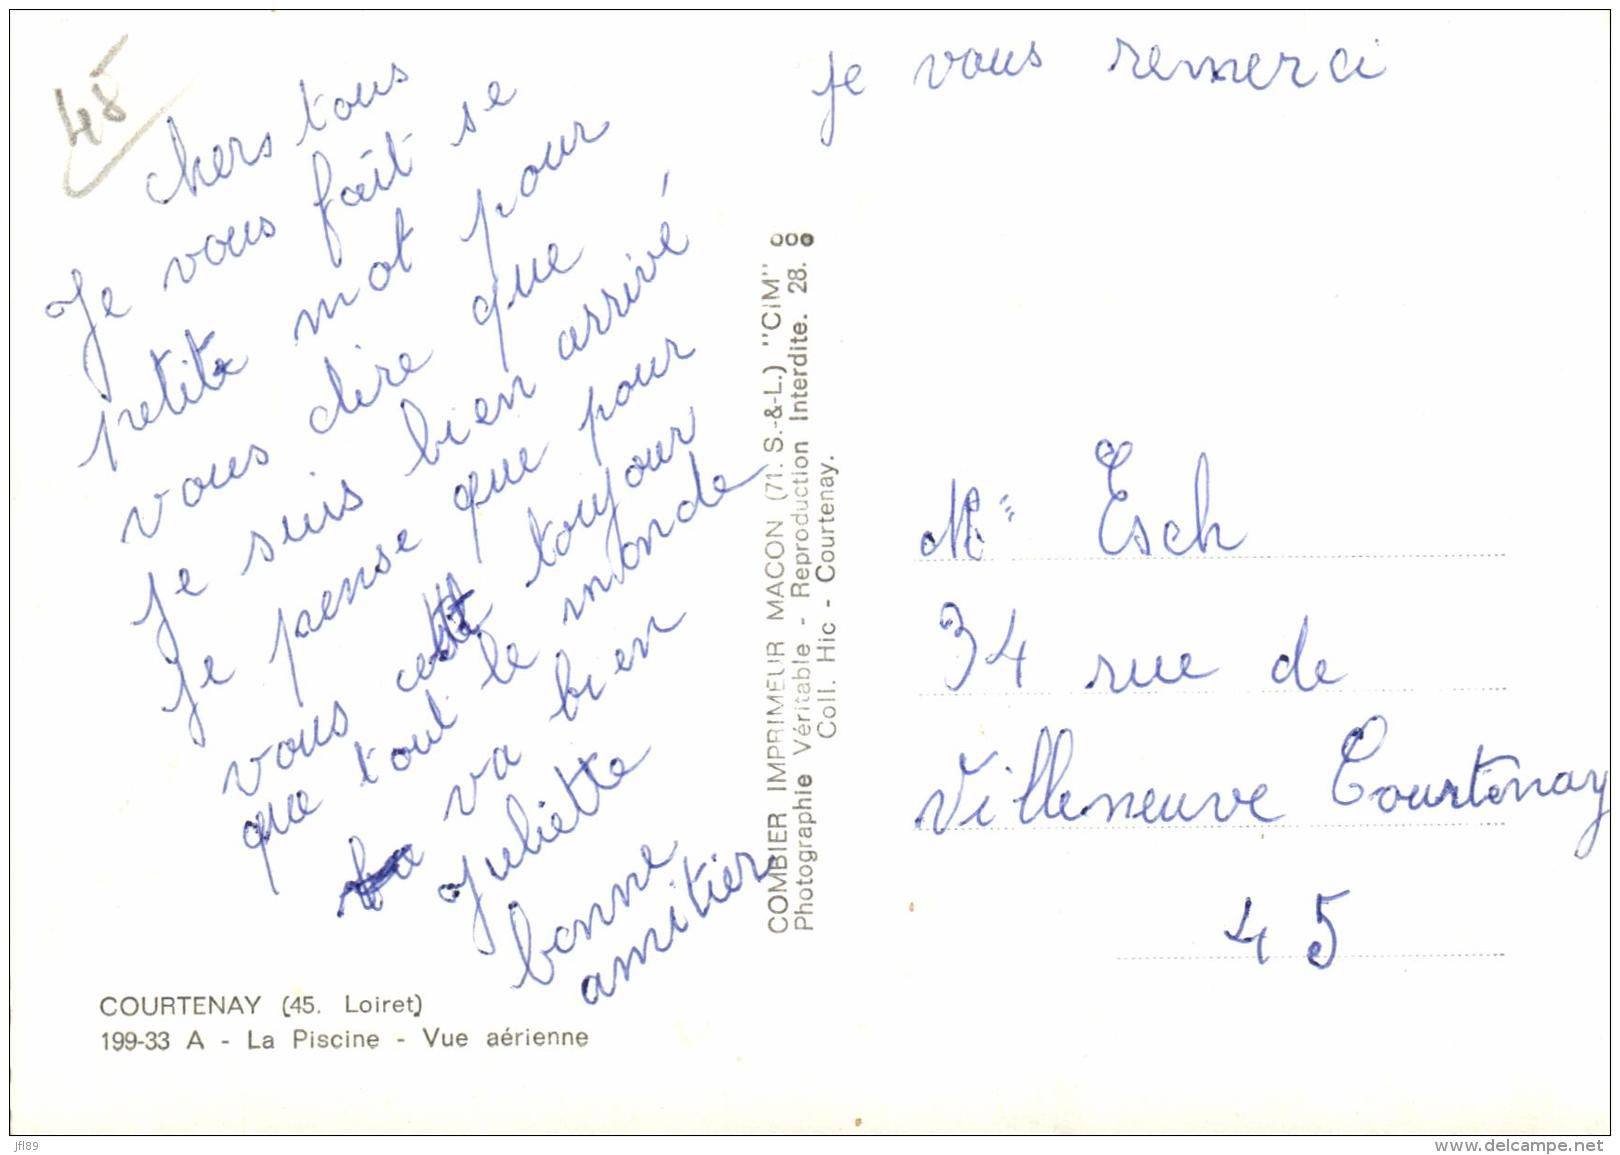 45
chers tous
Je vous fait se
petite mot pour
vous dire que
je suis bien arrivé
je pense que pour
vous toujour
que tout le monde
va bien
Juliette
bonne
amitier
je vous remerci
COMBIER IMPRIMEUR MACON (71. S.-&-L.) "CIM"
Photographie Véritable - Reproduction Interdite. 28.
Coll. Hic - Courtenay.
Me Esch
34 rue de
Villeneuve Courtenay
45
COURTENAY (45. Loiret)
199-33 A - La Piscine - Vue aérienne
jfl89
www.delcampe.net